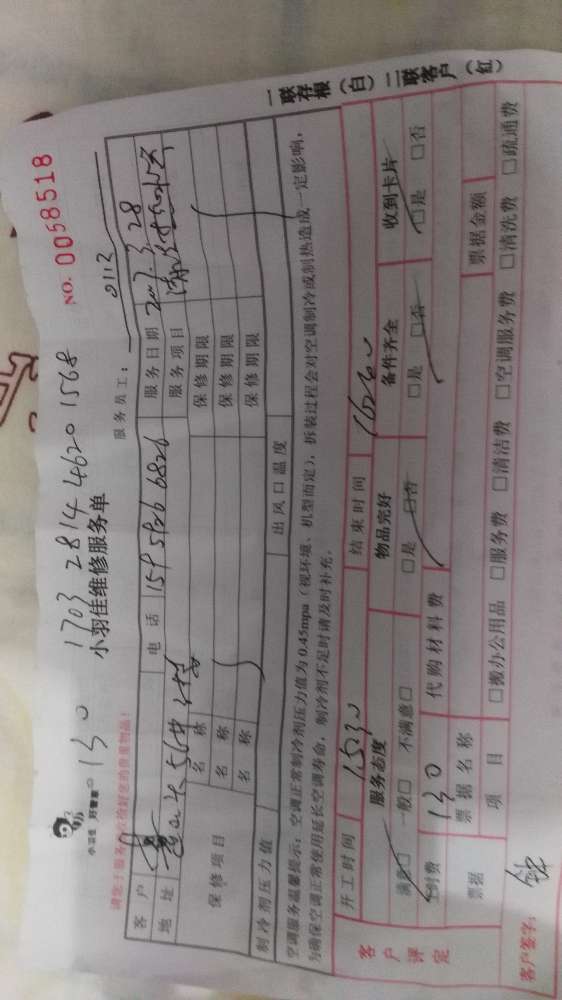 小羽佳 好管家
130 1703 2814 4620 1568
NO. 0058518
小羽佳维修服务单
服务员工： 0112
客户 电话 159 5926 6826 服务日期 2017.3.28
地址 服务项目
保修项目 名称 保修期限
名称 保修期限
名称 保修期限
制冷剂压力值 出风口温度
空调服务温馨提示：空调正常制冷剂压力值为0.45mpa（视环境、机型而定），拆装过程会对空调制冷或制热造成一定影响，
为确保空调正常使用延长空调寿命，制冷剂不足时请及时补充。
开工时间 15:30 结束时间 16:30
客户评定 服务态度 物品完好 备件齐全 收到卡片
满意□ 一般□ 不满意□ □是 □否 □是 □否 □是 □否
工时费 130 代购材料费
票据 票据名称 票据金额
项目 □搬办公用品 □服务费 □清洁费 □空调服务费 □清洗费 □疏通费
客户签字：
一联存根（白）二联客户（红）